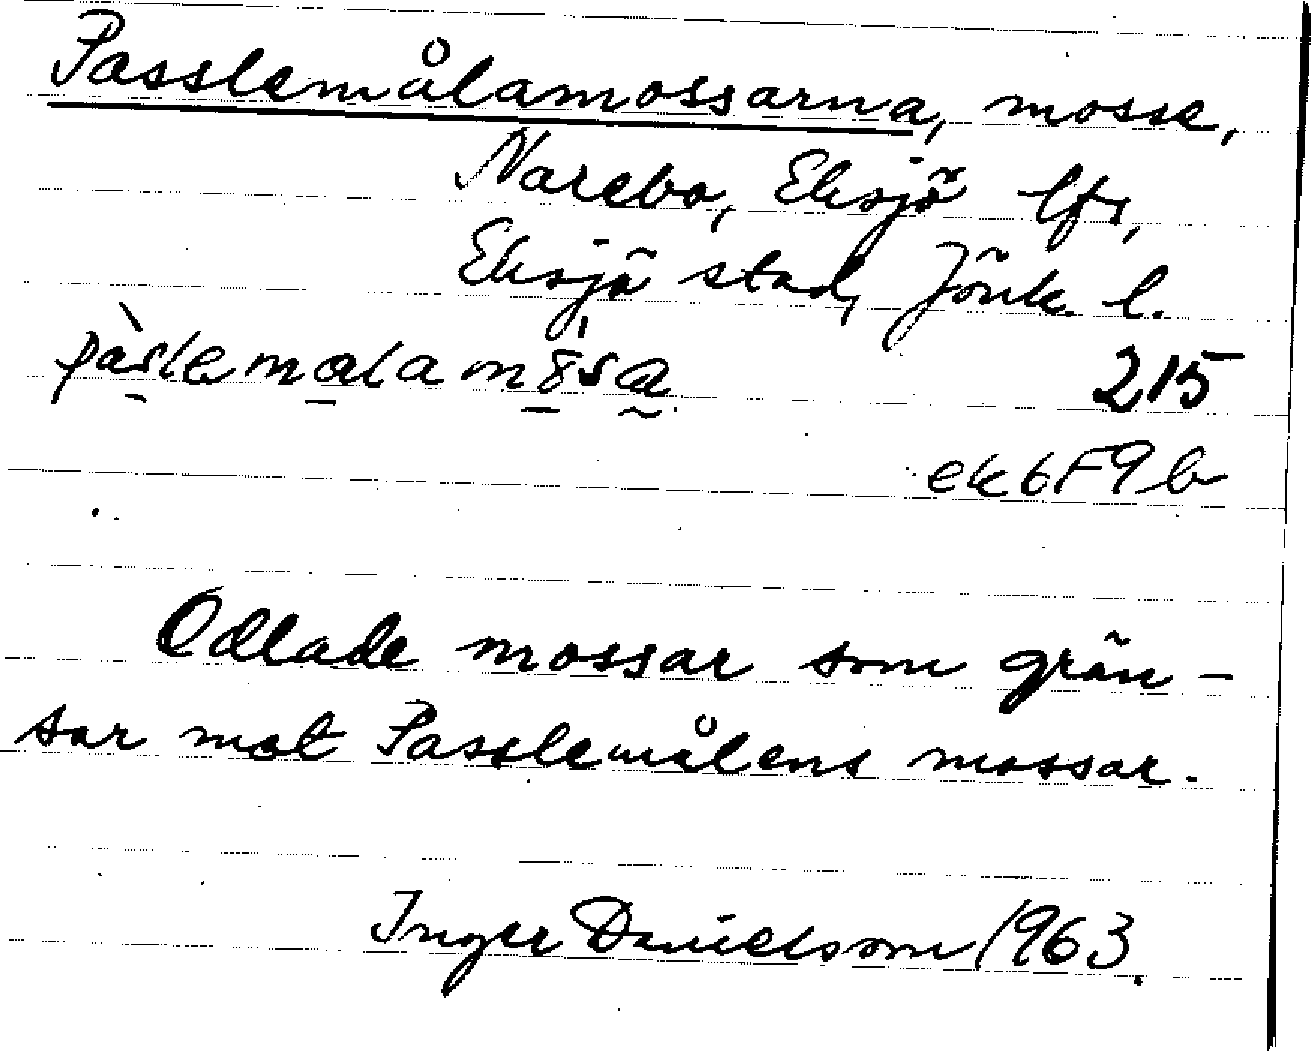 Passlemålamossarna, mosse,
Narebo, Eksjö lfs,
Eksjö stad, Jönk. l.
215
ek 6F9b
Odlade mossar som grän-
sar mot Passlemålens mossar.
Inger Danielsson 1963.